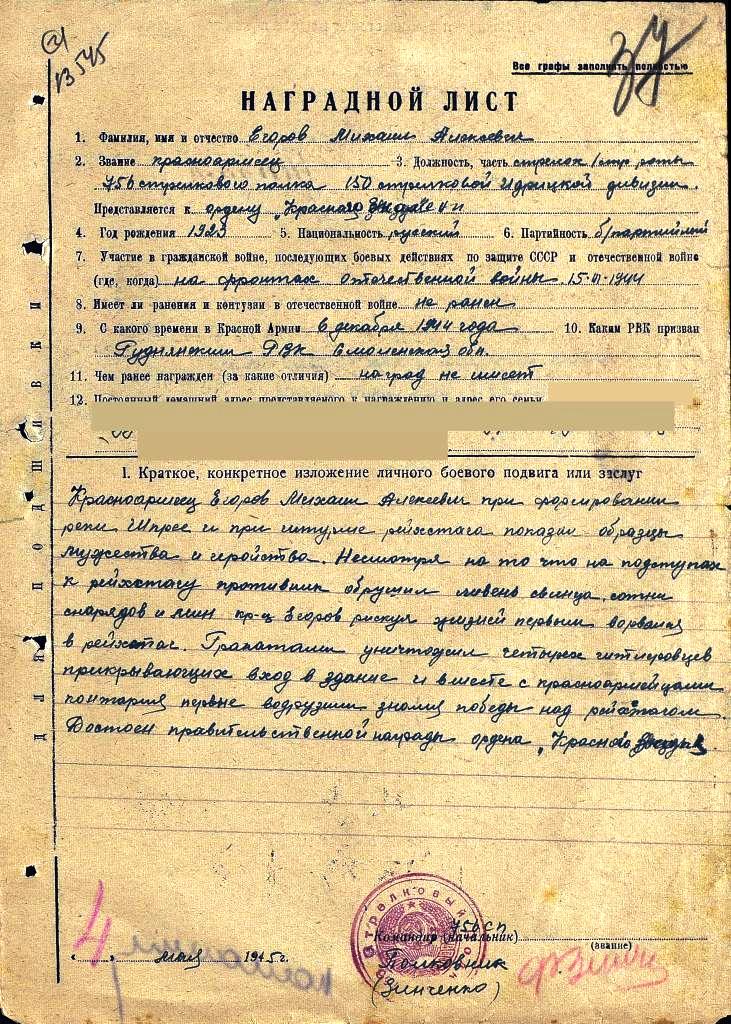 13545
37
Все графы заполнять полностью
НАГРАДНОЙ ЛИСТ
1. Фамилия, имя и отчество Егоров Михаил Алексеевич
2. Звание красноармеец 3. Должность, часть стрелок 1 стр роты
756 стрелкового полка 150 стрелковой Идрицкой дивизии.
Представляется к ордену „Красного
4. Год рождения 1923 5. Национальность русский 6. Партийность б/партийный
7. Участие в гражданской войне, последующих боевых действиях по защите СССР и отечественной войне
(где, когда) на фронтах Отечественной войны 15-VI-1944
8. Имеет ли ранения и контузии в отечественной войне не ранен
9. С какого времени в Красной Армии 6 декабря 1944 года 10. Каким РВК призван
Руднянским РВК Смоленской обл.
11. Чем ранее награжден (за какие отличия) наград не имеет
12. Постоянный домашний адрес представляемого к награждению и адрес его семьи
I. Краткое, конкретное изложение личного боевого подвига или заслуг
Красноармеец Егоров Михаил Алексеевич при формировании
реки Шпрее и при штурме рейхстага показал образцы
мужества и геройства. Несмотря на то что на подступах
к рейхстагу противник обрушил ливень свинца, сотни
снарядов и мин кр-ц Егоров рискуя жизнью первым ворвался
в рейхстаг. Гранатами уничтожил четырех гитлеровцев
прикрывающих вход в здание и вместе с красноармейцами
первые водрузили знамя победы над рейхстагом.
Достоен правительственной награды ордена „Красного
ДЛЯ ПОДШИВКИ
стрелковый
756 СП
Командир (начальник)
(звание)
4
„ " мая 1945 г.
Полковник
(Зинченко)